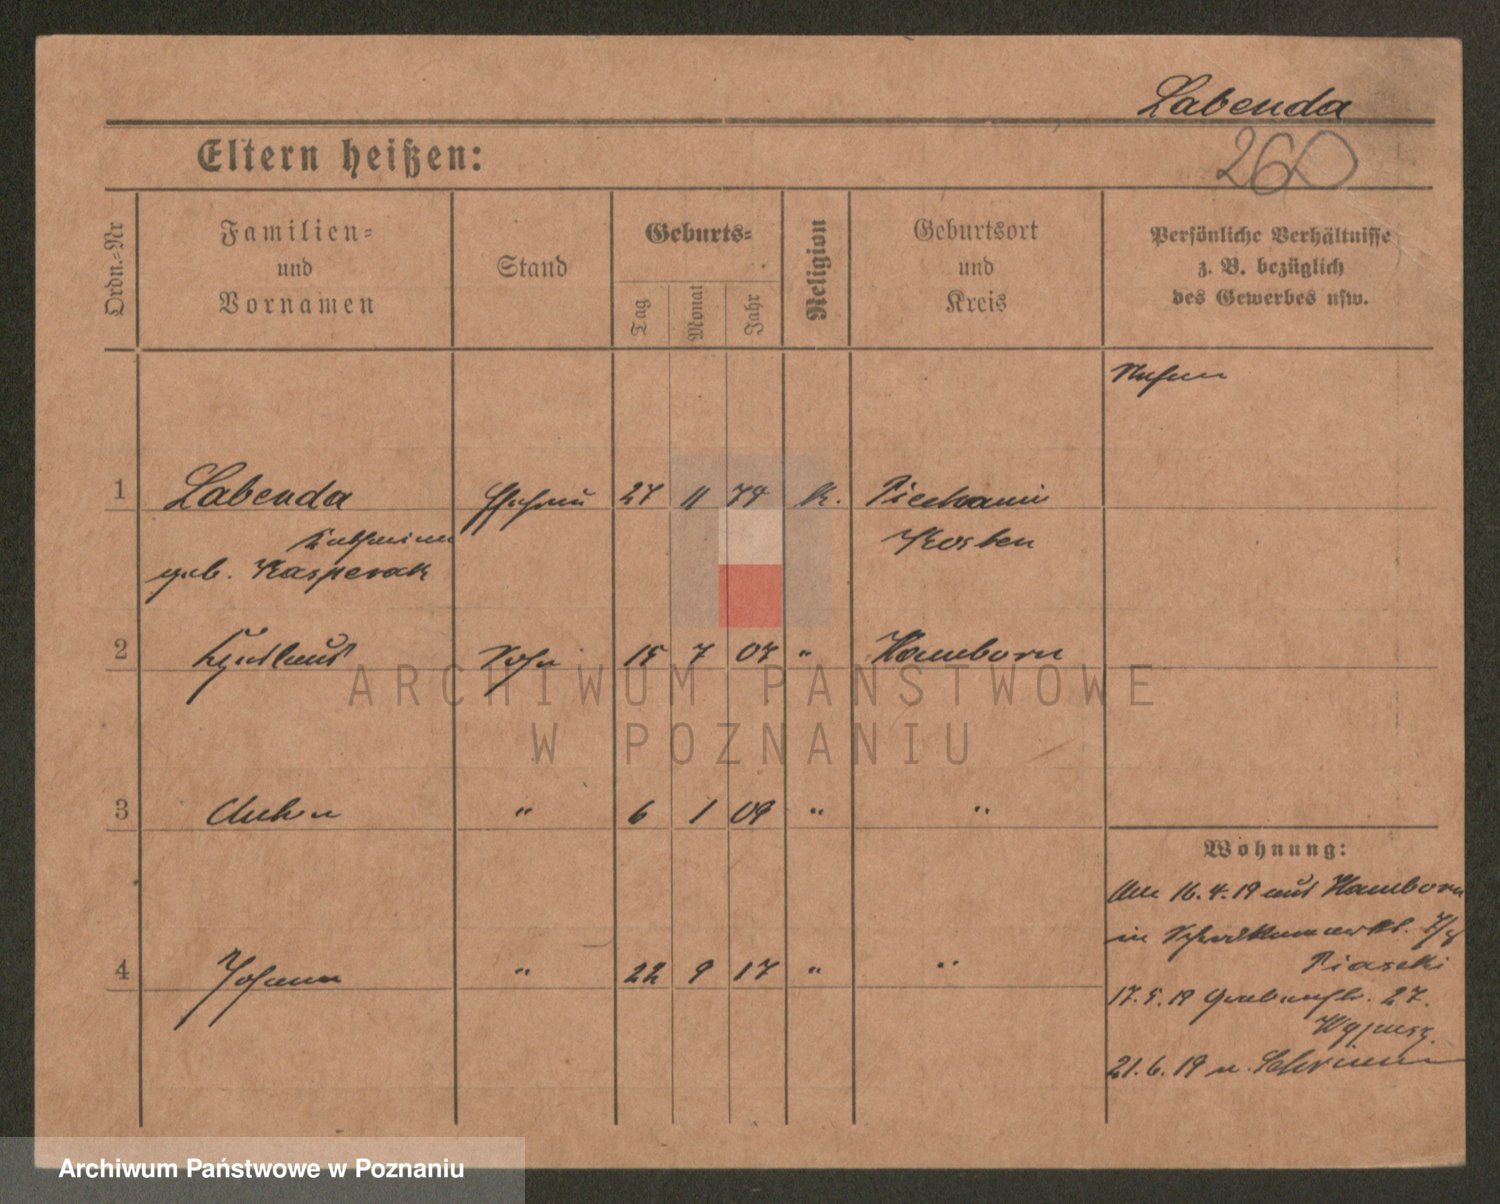 Labenda
260
Eltern heißen:
Ordn.-Nr
Familien-
und
Vornamen
Stand
Geburts-
Tag
Monat
Jahr
Religion
Geburtsort
und
Kreis
Persönliche Verhältnisse
z. B. bezüglich
des Gewerbes usw.
1 Labenda Ehefrau 27 11 74 k.
Katharina Kosten
geb. Kasperak
2 Sohn 15 7 07 " Hamborn
3 Anton " 6 1 09 " "
4 Johann " 22 9 17 " "
Wohnung:
Am 16.4.19 aus Hamborn
in
Piasecki
17.5.19 Grabenstr. 27.
21.6.19 n. Schrimm
ARCHIWUM PAŃSTWOWE
W POZNANIU
Archiwum Państwowe w Poznaniu